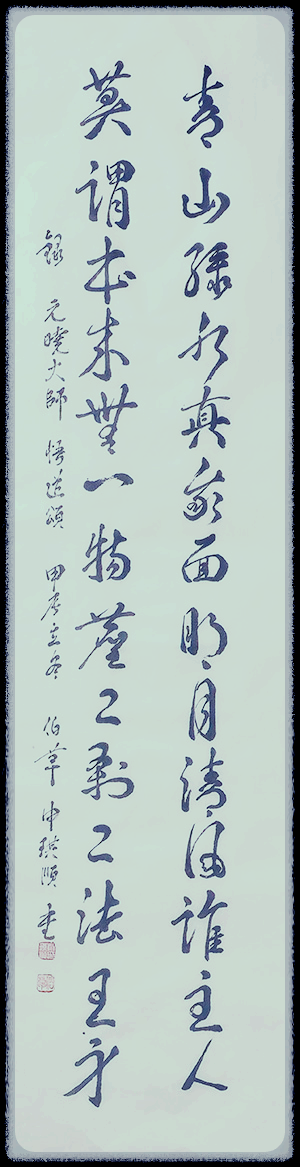 青山綠水真我面明月淸風誰主人
莫謂本來無一物塵〻刹〻法王身
錄 元曉大師 悟道頌 甲辰立冬 伯草 申瑛順